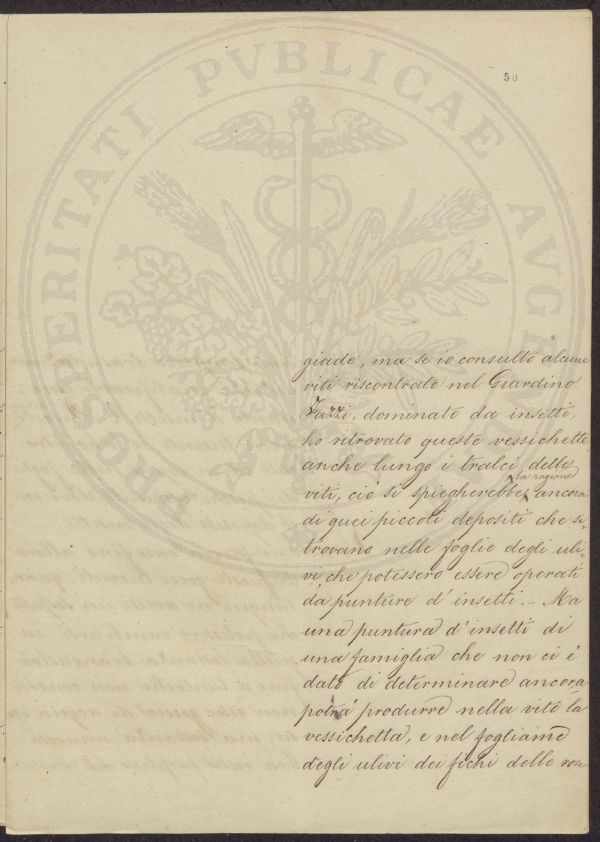 50
giade, ma se io consulto alcune
viti riscontrate nel Giardino
Fazzi, dominate da insetti,
ho ritrovato queste vessichette
anche lungo i tralci delle
viti, ciò si spiegherebbe la ragione ancora
di quei piccoli depositi che si
trovano nelle foglie degli uli-
vi che potessero essere operati
da punture d'insetti. - Ma
una puntura d'insetti di
una famiglia che non ci è
dato di determinare ancora
potrà produrre nella vite la
vessichetta, e nel fogliame
degli ulivi dei fichi delle
PROSPERITATI PVBLICAE AVGE